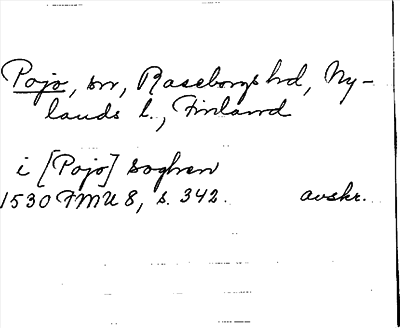 Pojo, sn, Raseborgs hd, Ny-
lands l., Finland
i [Pojo] soghen
1530 FMU 8, s. 342. avskr.